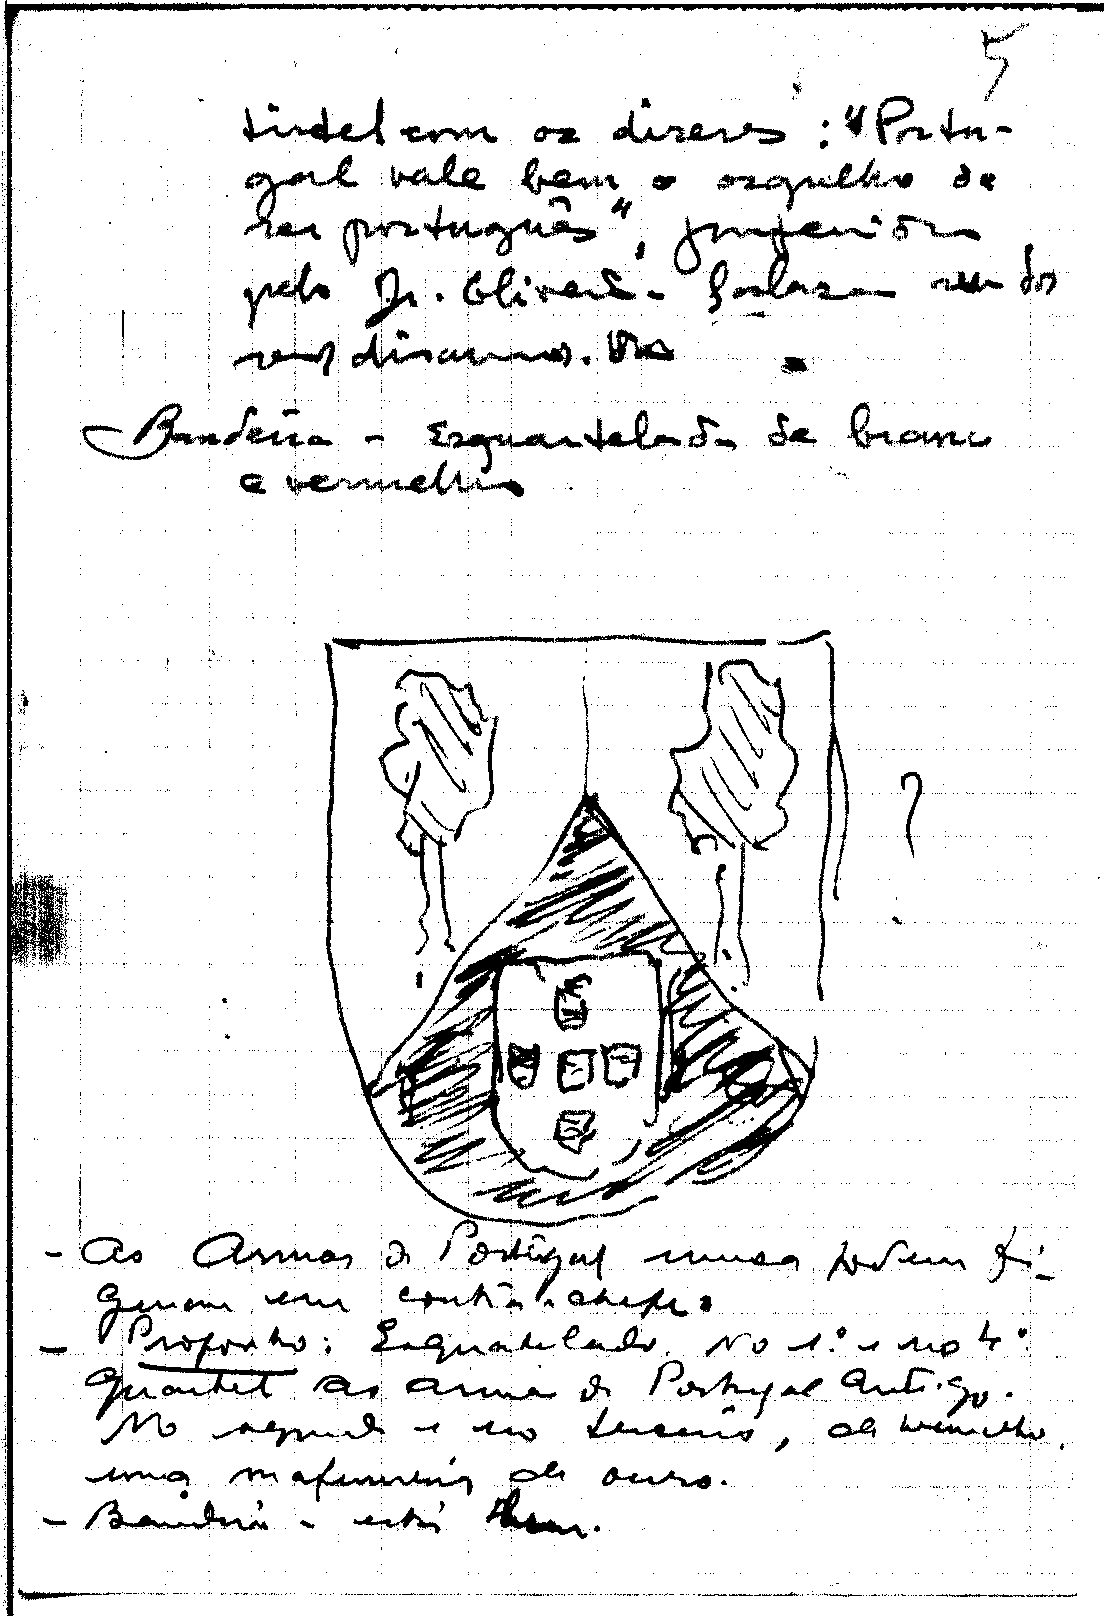 5
tintel com os dizeres: "Portu-
gal vale bem o orgulho de
ser português", proferidos
pelo Dr. Oliveira Salazar num dos
seus discursos.
Bandeira - Esquartelada de branco
e vermelho
?
- As Armas de Portugal nunca podem fi-
gurar em contra-chefe.
- Proponho: Esquartelado. No 1.º e no 4.º
quartel as armas de Portugal Antigo.
No segundo e no terceiro, de vermelho,
uma mafumeira de ouro.
- Bandeira - está bem.